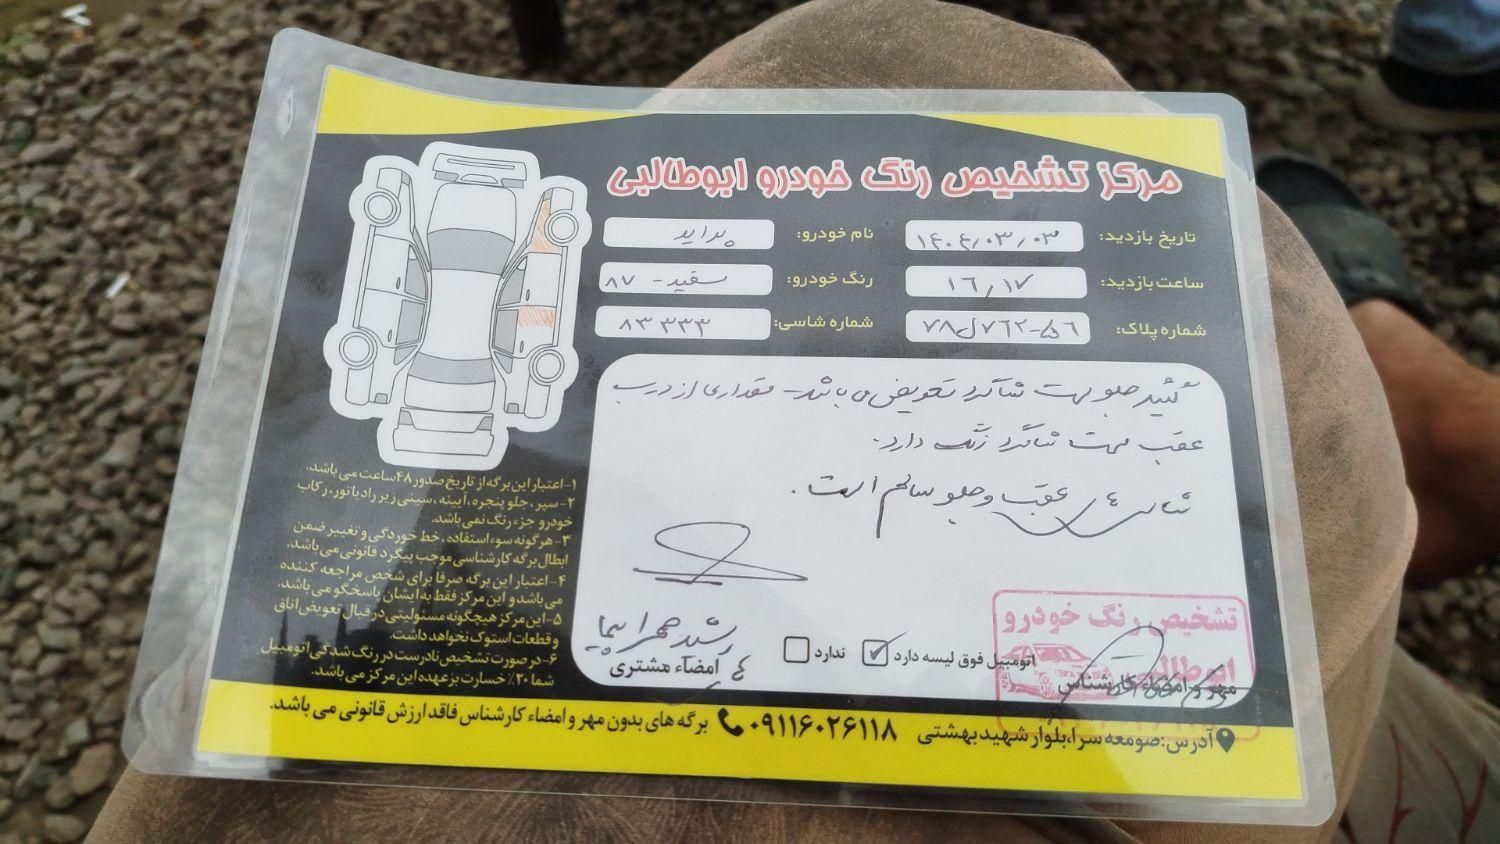 مرکز تشخیص رنگ خودرو ابوطالبی
تاریخ بازدید: ۱۴۰۴/۰۳/۰۳
نام خودرو: پراید
ساعت بازدید: ۱۶/۱۷
رنگ خودرو: سفید - ۸۷
شماره پلاک: ۷۸ل۷۶۲-۵۶
شماره شاسی: ۸۳۳۳۳
گلگیر جلو سمت شاگرد تعویض می باشد - مقداری از درب
عقب سمت شاگرد رنگ دارد.
شاسی های عقب و جلو سالم است.
اتومبیل فوق لیسه دارد ندارد
امضاء مشتری
مهر و امضاء کارشناس
تشخیص رنگ خودرو
ابوطالبی
۱-اعتبار این برگه از تاریخ صدور ۴۸ ساعت می باشد.
۲-سپر، جلو پنجره، آیینه، سینی زیر رادیاتور، رکاب
خودرو جزء رنگ نمی باشد.
۳-هرگونه سوء استفاده، خط خوردگی و تغییر ضمن
ابطال برگه کارشناسی موجب پیگرد قانونی می باشد.
۴-اعتبار این برگه صرفا برای شخص مراجعه کننده
می باشد و این مرکز فقط به ایشان پاسخگو می باشد.
۵-این مرکز هیچگونه مسئولیتی در قبال تعویض اتاق
و قطعات استوک نخواهد داشت.
۶-در صورت تشخیص نادرست در رنگ شدگی اتومبیل
شما ۲۰٪ خسارت بر عهده این مرکز می باشد.
آدرس: صومعه سرا، بلوار شهید بهشتی ۰۹۱۱۶۰۲۶۱۱۸ برگه های بدون مهر و امضاء کارشناس فاقد ارزش قانونی می باشد.